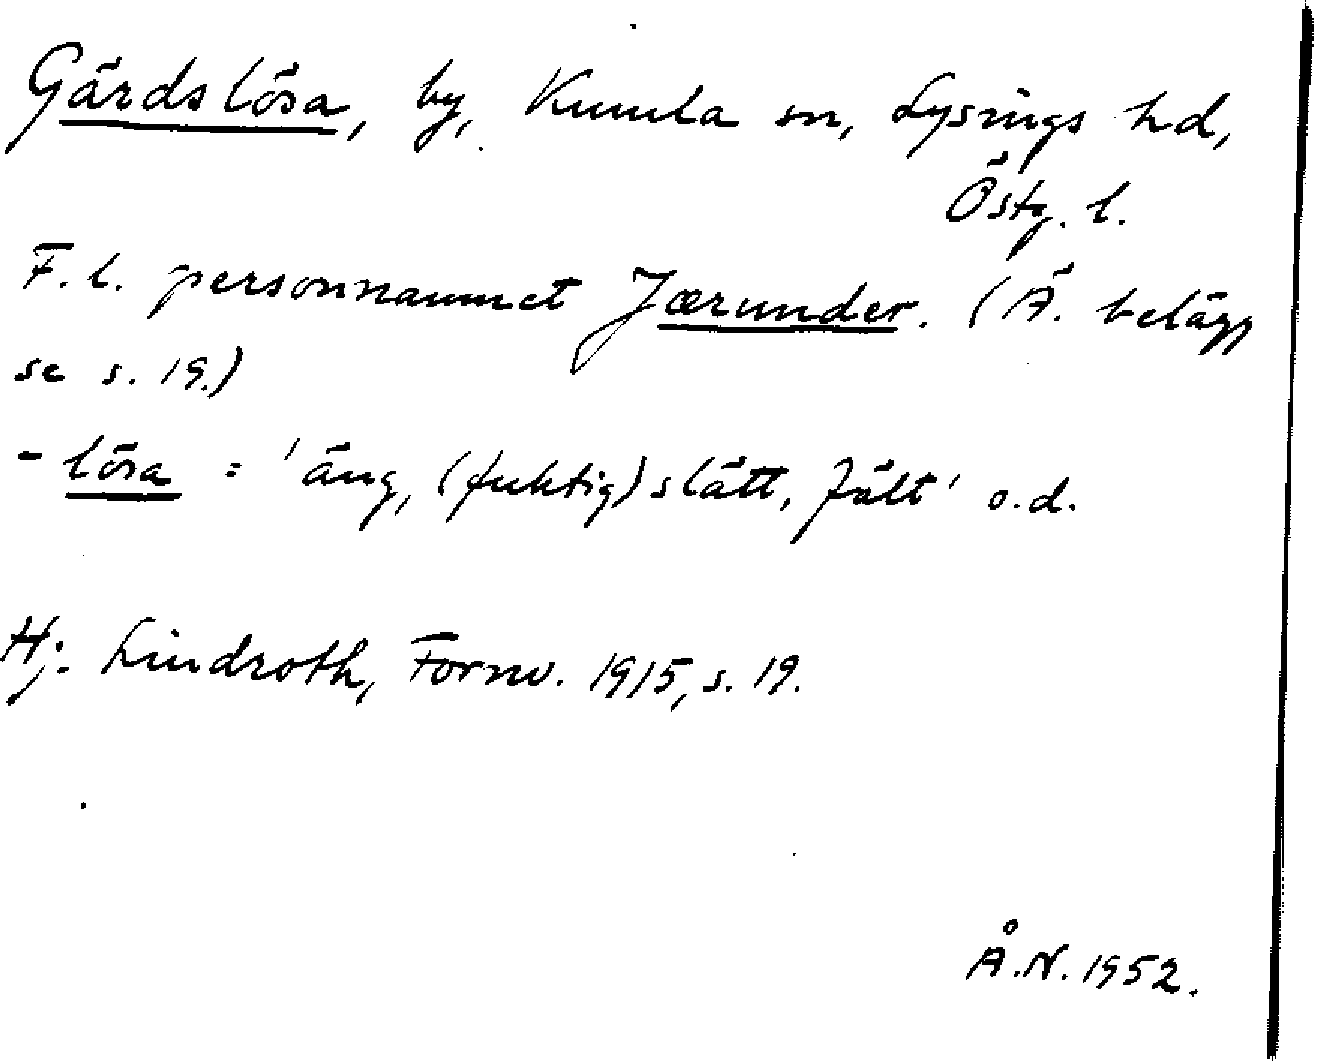 Gärdslösa, by, Kumla sn, Lysings hd,
Östg. l.
F. l. personnamnet Jærunder. (Ä. belägg
se s. 19.)
- lösa = 'äng, (fuktig) slätt, fält' o.d.
Hj. Lindroth, Fornv. 1915, s. 19.
Å.N. 1952.